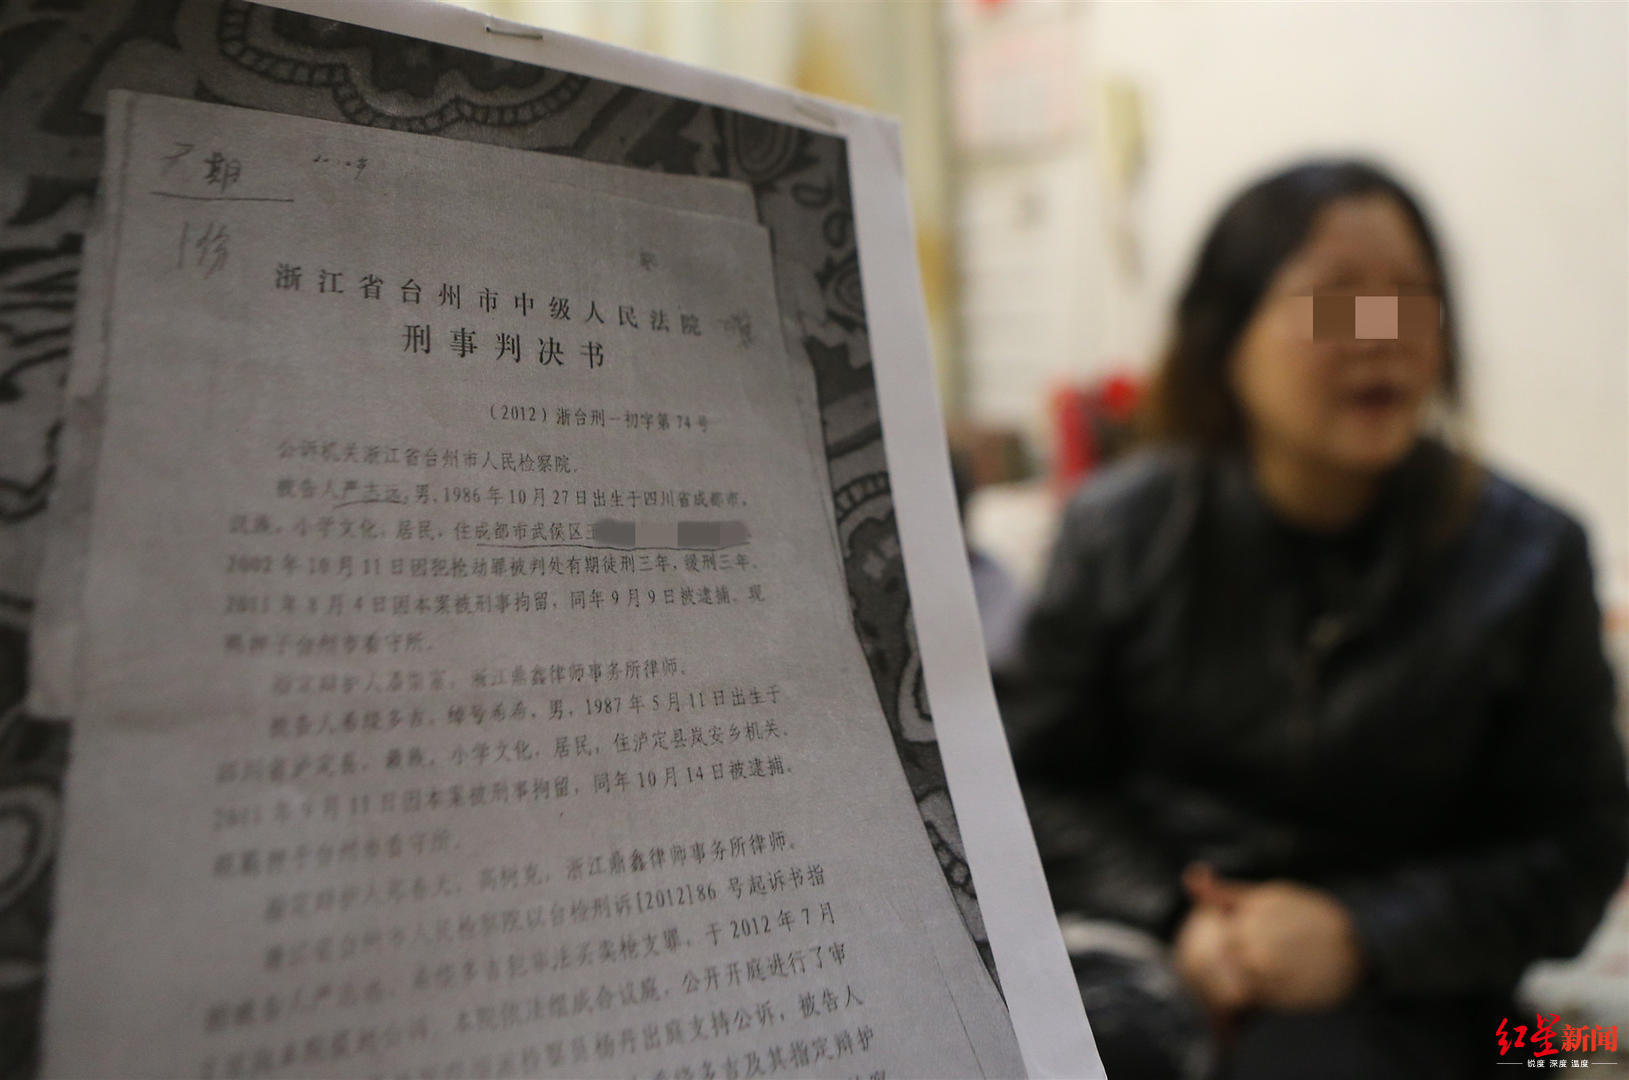 7期
1份
浙江省台州市中级人民法院
刑事判决书
（2012）浙台刑一初字第74号
公诉机关浙江省台州市人民检察院。
被告人严志远，男，1986年10月27日出生于四川省成都市，
汉族，小学文化，居民，住成都市武侯区
2002年10月11日因犯抢劫罪被判处有期徒刑三年，缓刑三年。
2011年8月4日因本案被刑事拘留，同年9月9日被逮捕。现
羁押于台州市看守所。
指定辩护人，浙江鼎鑫律师事务所律师。
被告人希绕多吉，绰号希希，男，1987年5月11日出生于
四川省泸定县，藏族，小学文化，居民，住泸定县岚安乡机关。
2011年9月11日因本案被刑事拘留，同年10月14日被逮捕。
现羁押于台州市看守所。
指定辩护人郑春犬、高树克，浙江鼎鑫律师事务所律师。
浙江省台州市人民检察院以台检刑诉[2012]86号起诉书指
控被告人严志远、希绕多吉犯非法买卖枪支罪，于2012年7月
本院依法组成合议庭，公开开庭进行了审
检察员杨丹出庭支持公诉，被告人
希绕多吉及其指定辩护
红星新闻
锐度 深度 温度